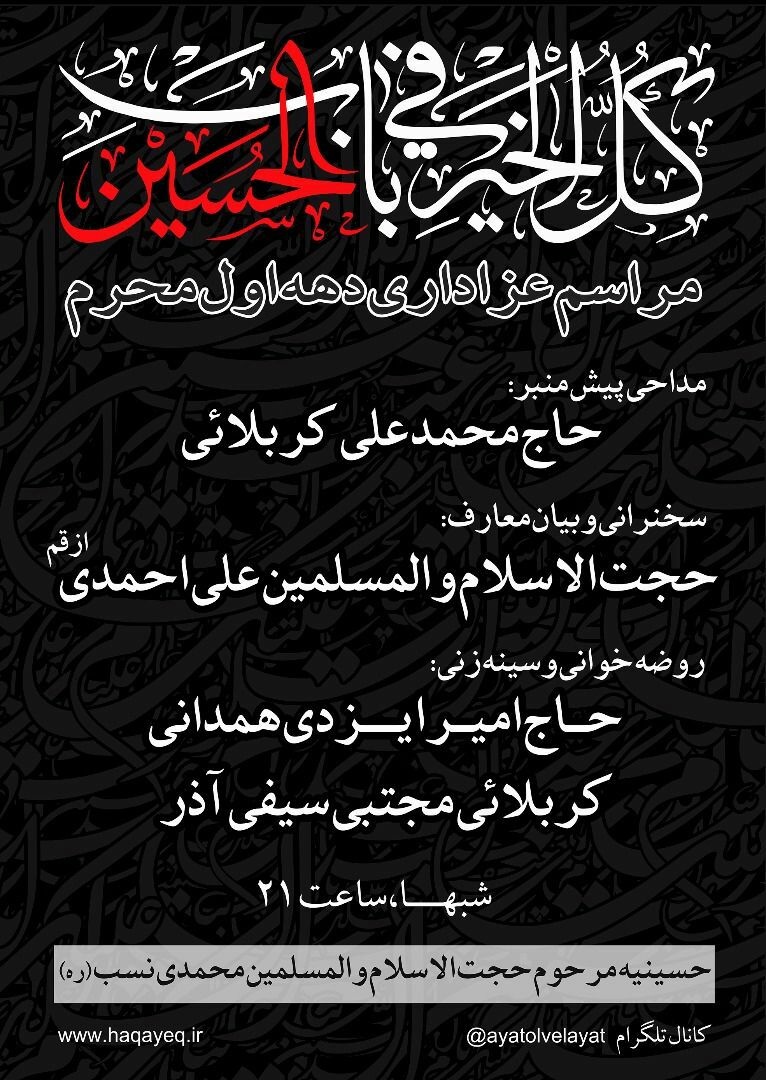 كُلُّ الخَيرِ في بابِ الحُسَين
مراسم عزاداری دهه اول محرم
مداحی پیش منبر:
حاج محمدعلی کربلائی
سخنرانی و بیان معارف:
حجت الاسلام و المسلمین علی احمدی از قم
روضه خوانی و سینه زنی:
حاج امیر ایزدی همدانی
کربلائی مجتبی سیفی آذر
شبها، ساعت ۲۱
حسینیه مرحوم حجت الاسلام و المسلمین محمدی نسب (ره)
کانال تلگرام @ayatolvelayat
www.haqayeq.ir